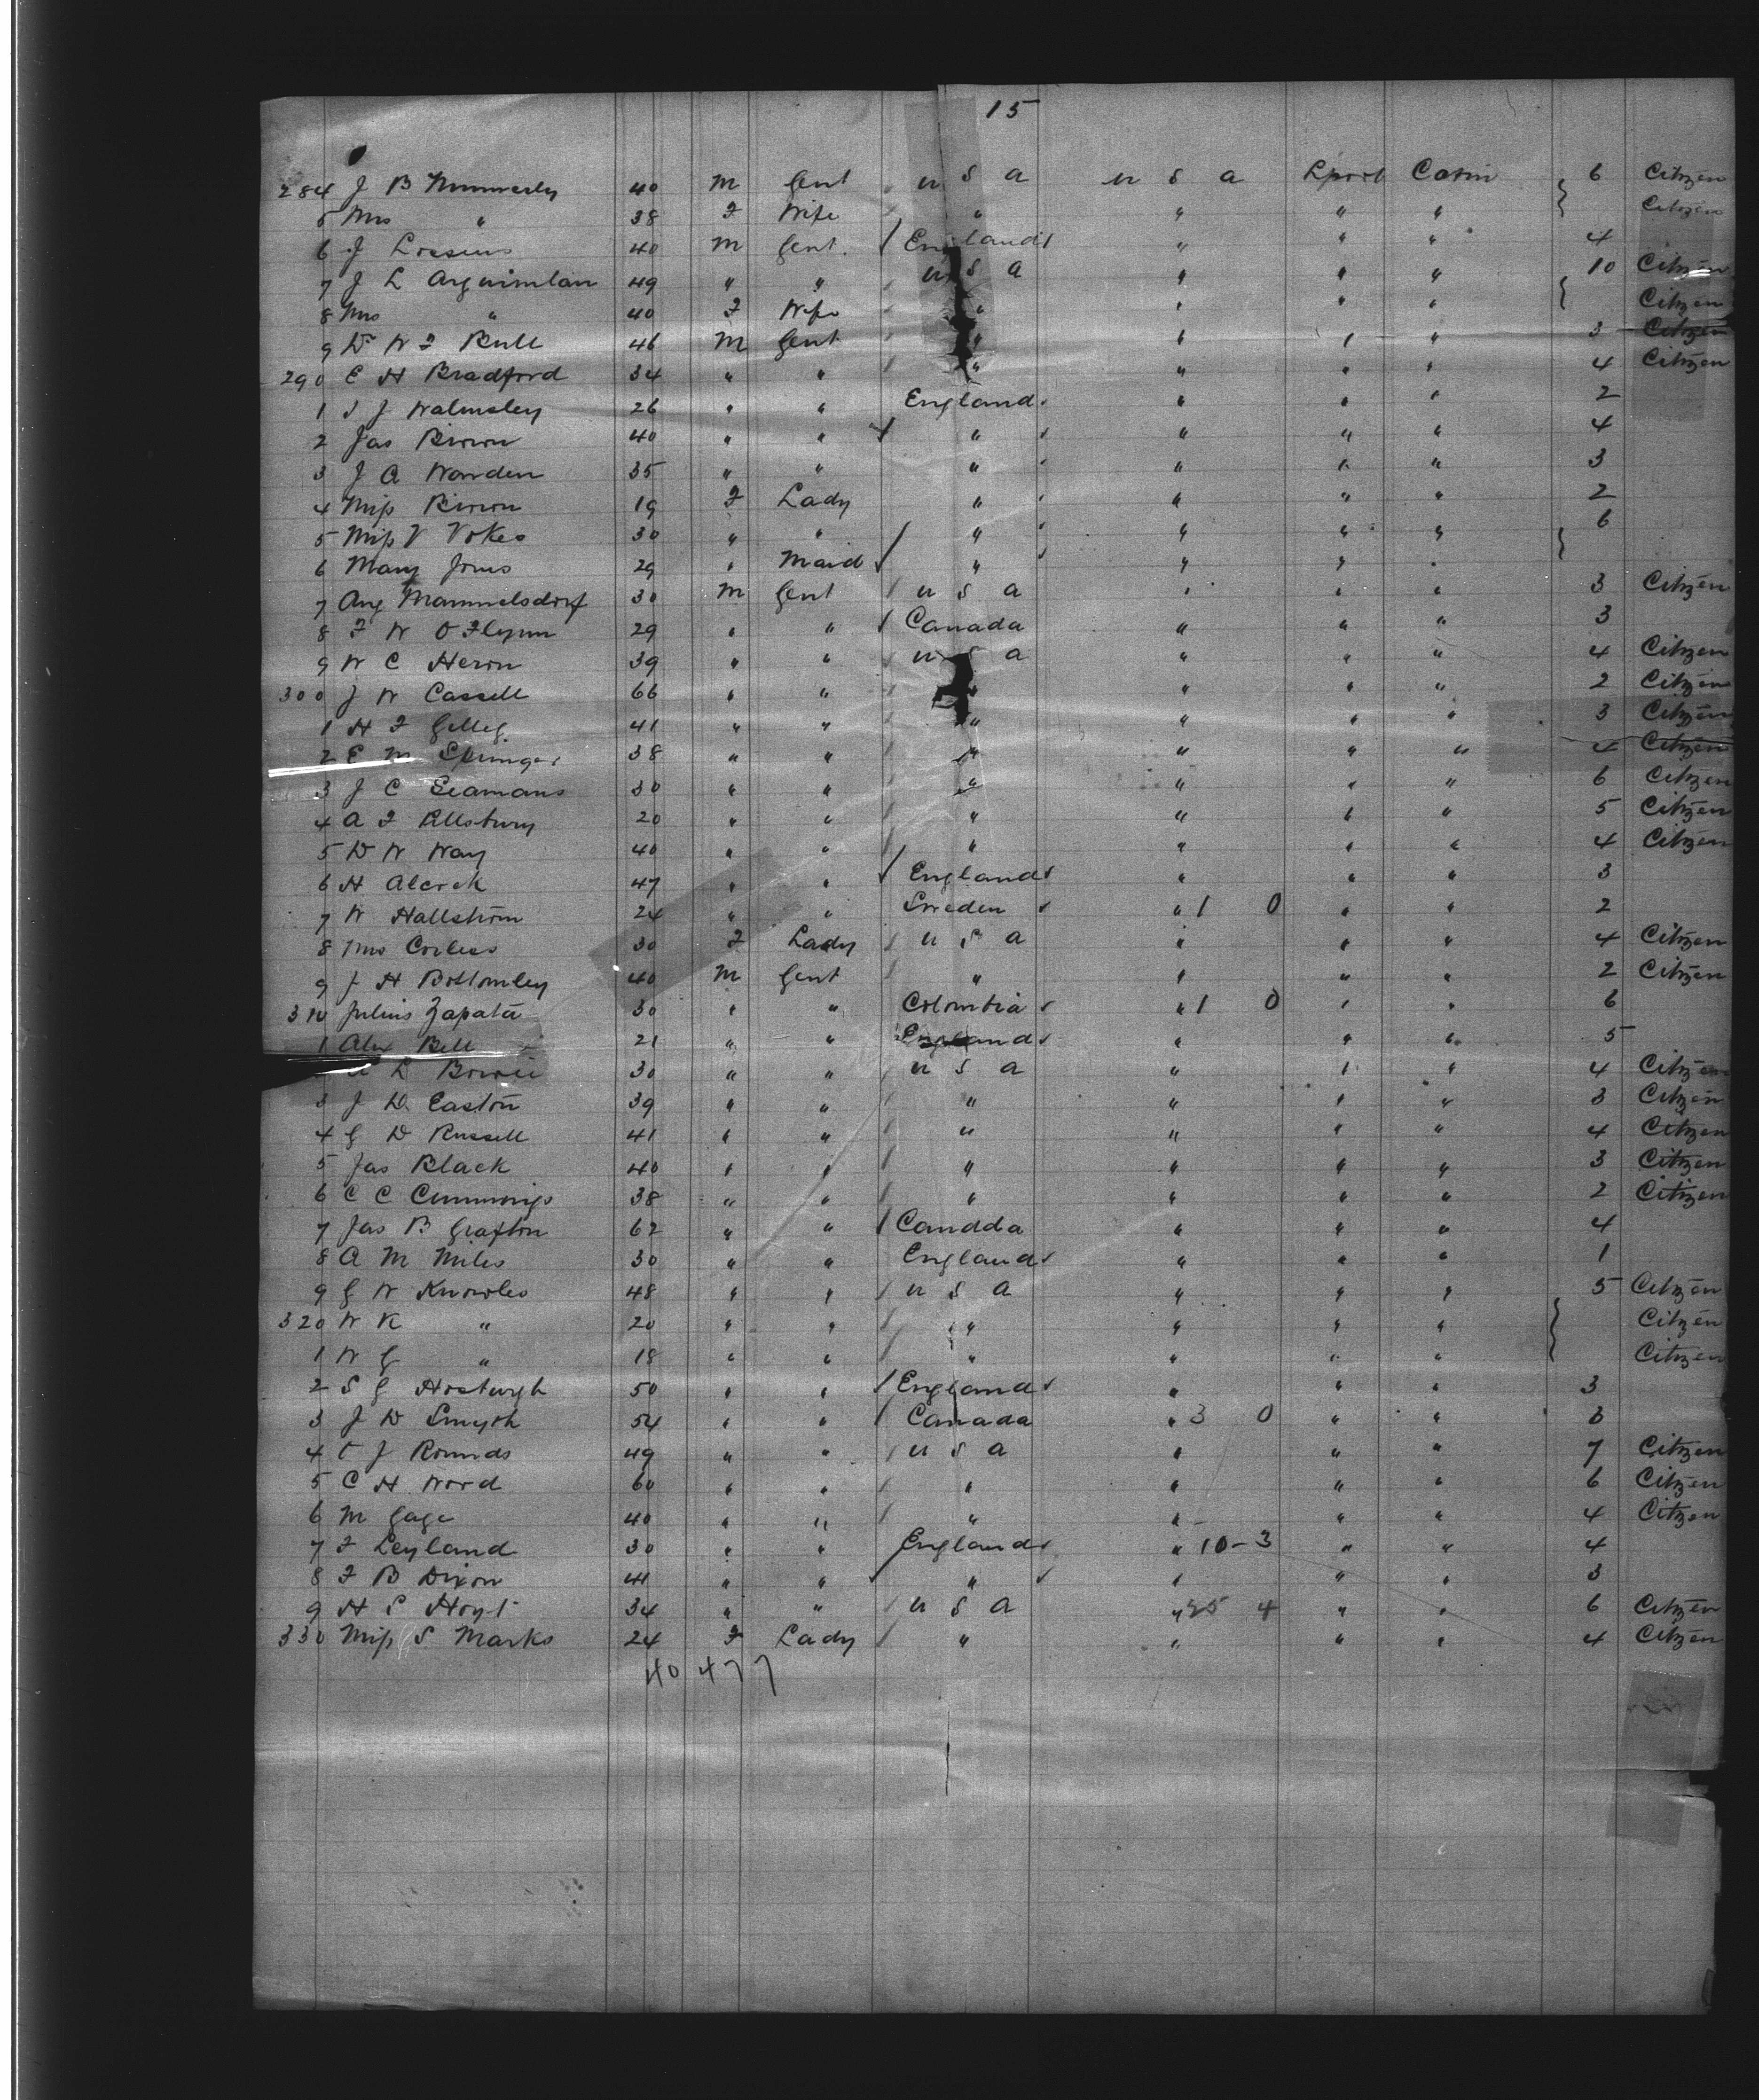 15
284 J B 40 M Gent U S A U S A Lpool Cabin 6 Citizen
5 Mrs " 38 F Wife " " " " Citizen
6 J 40 M Gent England " " " 4
7 J L 49 " " U S A " " " 10 Citizen
8 Mrs " 40 F Wife " " " " Citizen
9 W F Bull 46 M Gent " " " " 3 Citizen
290 E H Bradford 34 " " " " " " 4 Citizen
1 J Walmsley 26 " " England " " " 2
2 Jas Birown 40 " " " " " " 4
3 J A Warden 35 " " " " " " 3
4 Miss Birown 19 F Lady " " " " 2
5 Miss V Vokes 30 " " " " " " 6
6 Mary Jones 29 " Maid " " " "
7 Aug Mammelsdorf 30 M Gent U S A " " " 3 Citizen
8 F W O Flynn 29 " " Canada " " " 3
9 W C Heron 39 " " U S A " " " 4 Citizen
300 J W Cassell 66 " " " " " " 2 Citizen
1 H F 41 " " " " " " 3 Citizen
2 E M Springer 38 " " " " " " 4 Citizen
3 J C Seamans 30 " " " " " " 6 Citizen
4 A F Pillsbury 20 " " " " " " 5 Citizen
5 D W Way 40 " " " " " " 4 Citizen
6 H Alcock 47 " " England " " " 3
7 W Hallstrom 24 " " Sweden " 1 0 " " 2
8 Mrs Corless 30 F Lady U S A " " " 4 Citizen
9 J H Bottomley 40 M Gent " " " " 2 Citizen
310 Julius Zapata 30 " " Colombia " 1 0 " " 6
1 Alex Bell 21 " " England " " " 5
L Bowie 30 " " U S A " " " 4 Citizen
3 J D Easton 39 " " " " " " 3 Citizen
4 G D Russell 41 " " " " " " 4 Citizen
5 Jas Black 40 " " " " " " 3 Citizen
6 C C Cummings 38 " " " " " " 2 Citizen
7 Jas B Grafton 62 " " Candda " " " 4
8 A M Miles 30 " " England " " " 1
9 G W Knowles 48 " " U S A " " " 5 Citizen
320 W K " 20 " " " " " " Citizen
1 W G " 18 " " " " " " Citizen
2 S G 50 " " England " " " 3
3 J D Smyth 54 " " Canada " 3 0 " " 3
4 J Rounds 49 " " U S A " " " 7 Citizen
5 C H Word 60 " " " " " " 6 Citizen
6 M Gage 40 " " " " " " 4 Citizen
7 F Leyland 30 " " England " 10-3 " " 4
8 F B Dixon 41 " " " " " " 3
9 H S Hoyt 34 " " U S A " 4 " " 6 Citizen
330 Miss S Marks 24 F Lady " " " " 4 Citizen
40 477